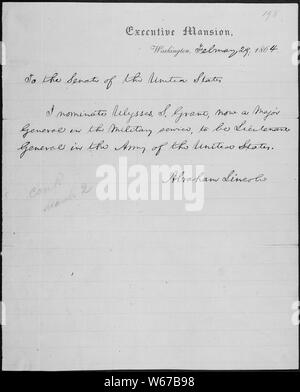 198
Executive Mansion,
Washington, February 29, 1864
To the Senate of the United States
I nominate Ulysses S. Grant, now a Major
General in the Military service, to be Lieutenant
General in the Army of the United States.
Abraham Lincoln
March 2
a
alamy
Image ID: W67B98
www.alamy.com